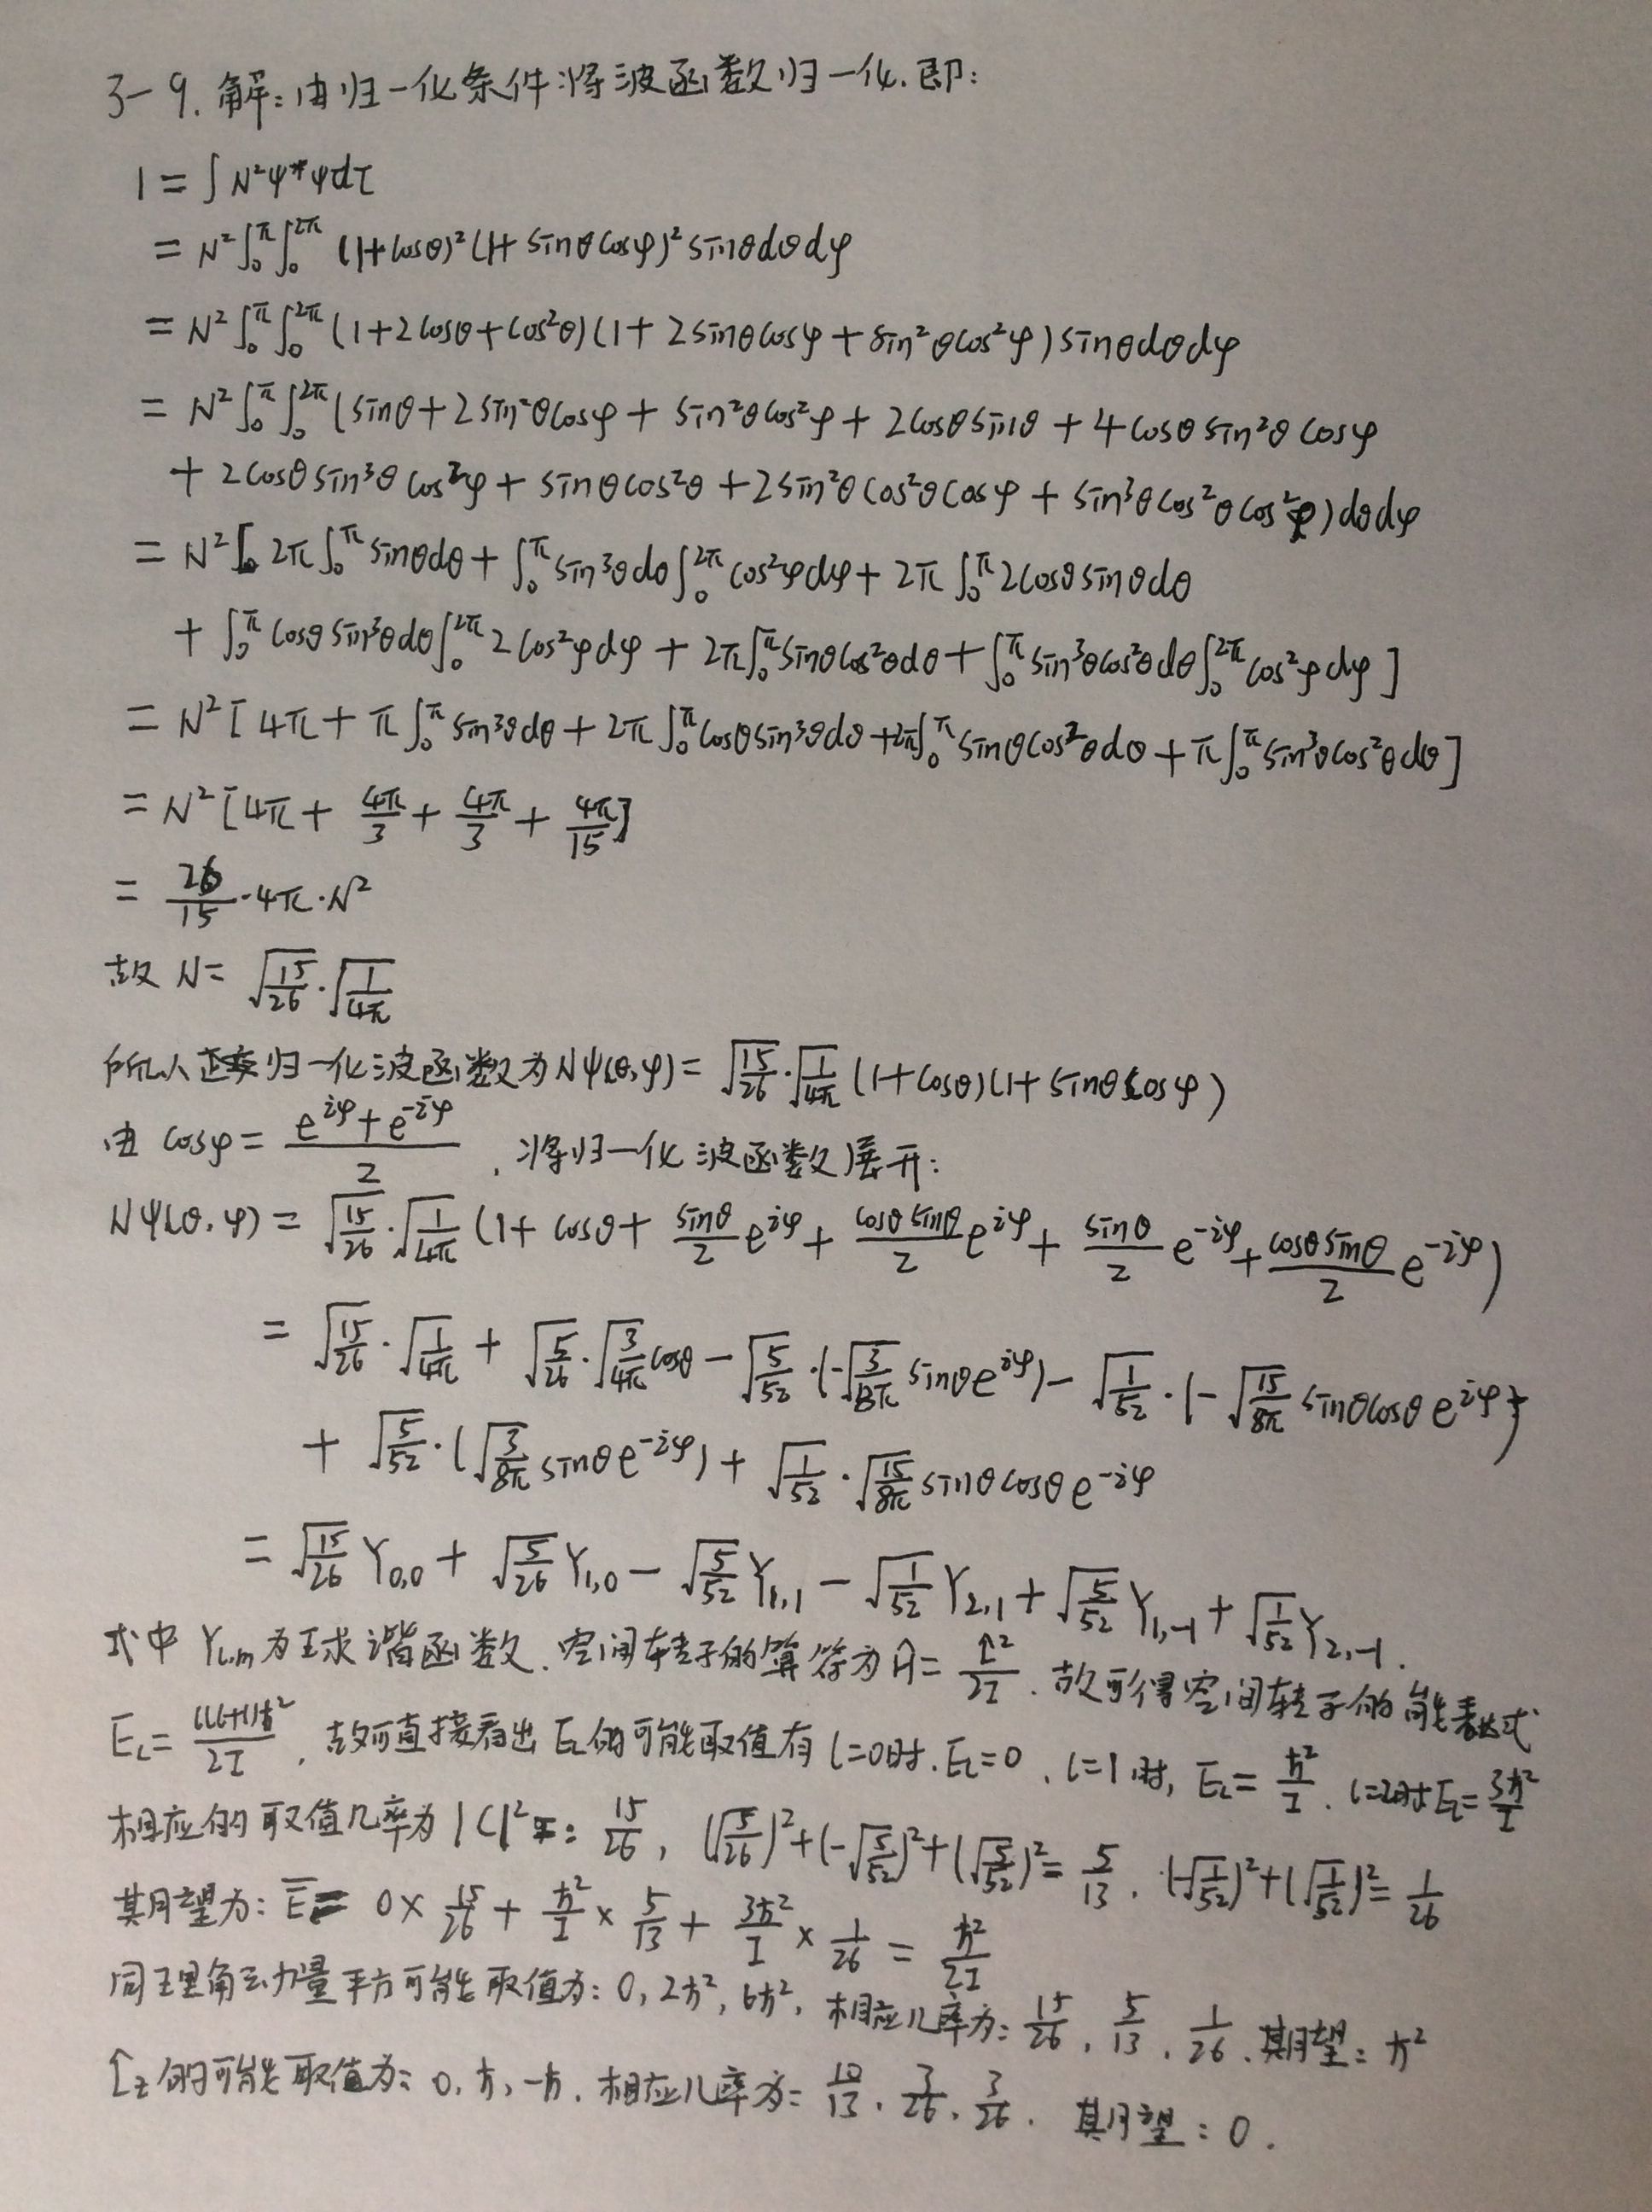 3-9. 解：由归一化条件将波函数归一化.即：
1 = ∫N²ψ*ψdτ
= N²∫₀^π∫₀^2π (1+cosθ)²(1+sinθcosφ)²sinθdθdφ
= N²∫₀^π∫₀^2π (1+2cosθ+cos²θ)(1+2sinθcosφ+sin²θcos²φ)sinθdθdφ
= N²∫₀^π∫₀^2π (sinθ+2sin²θcosφ+sin²θcos²φ+2cosθsinθ+4cosθsin²θcosφ
+2cosθsin³θcos²φ+sinθcos²θ+2sin²θcos²θcosφ+sin³θcos²θcos²φ)dθdφ
= N²[2π∫₀^π sinθdθ+∫₀^π sin³θdθ∫₀^2π cos²φdφ+2π∫₀^π 2cosθsinθdθ
+∫₀^π cosθsin³θdθ∫₀^2π 2cos²φdφ+2π∫₀^π sinθcos²θdθ+∫₀^π sin³θcos²θdθ∫₀^2π cos²φdφ]
= N²[4π+π∫₀^π sin³θdθ+2π∫₀^π cosθsin³θdθ+2π∫₀^π sinθcos²θdθ+π∫₀^π sin³θcos²θdθ]
= N²[4π+4π/3+4π/3+4π/15]
= 26/15·4π·N²
故 N= √(15/26)·√(1/4π)
所以归一化波函数为Nψ(θ,φ)=√(15/26)·√(1/4π)(1+cosθ)(1+sinθcosφ)
由 cosφ=(e^iφ+e^-iφ)/2，将归一化波函数展开：
Nψ(θ,φ)=√(15/26)·√(1/4π)(1+cosθ+sinθ/2 e^iφ+cosθsinθ/2 e^iφ+sinθ/2 e^-iφ+cosθsinθ/2 e^-iφ)
=√(15/26)·√(1/4π)+√(5/26)·√(3/4π)cosθ-√(5/52)·(-√(3/8π)sinθe^iφ)-√(1/52)·(-√(15/8π)sinθcosθe^iφ)
+√(5/52)·(√(3/8π)sinθe^-iφ)+√(1/52)·√(15/8π)sinθcosθe^-iφ
=√(15/26)Y₀,₀+√(5/26)Y₁,₀-√(5/52)Y₁,₁-√(1/52)Y₂,₁+√(5/52)Y₁,₋₁+√(1/52)Y₂,₋₁.
式中 Y_l,m为球谐函数.空间转子的算符为Ĥ=L̂²/2I.故可得空间转子的能表达式
E_l=l(l+1)ħ²/2I，故可直接看出E_l的可能取值有l=0时.E_l=0、l=1时，E_l=ħ²/I、l=2时E_l=3ħ²/I
相应的取值几率为|C|²：15/26，(√(5/26))²+(-√(5/52))²+(√(5/52))²=5/13，(-√(1/52))²+(√(1/52))²=1/26
其期望为：E̅=0×15/26+ħ²/I×5/13+3ħ²/I×1/26=ħ²/2I
同理角动量平方可能取值为：0,2ħ²,6ħ²，相应几率为：15/26、5/13、1/26、期望：ħ²
L̂z的可能取值为：0,ħ,-ħ.相应几率为：10/13、3/26、3/26. 其期望：0.